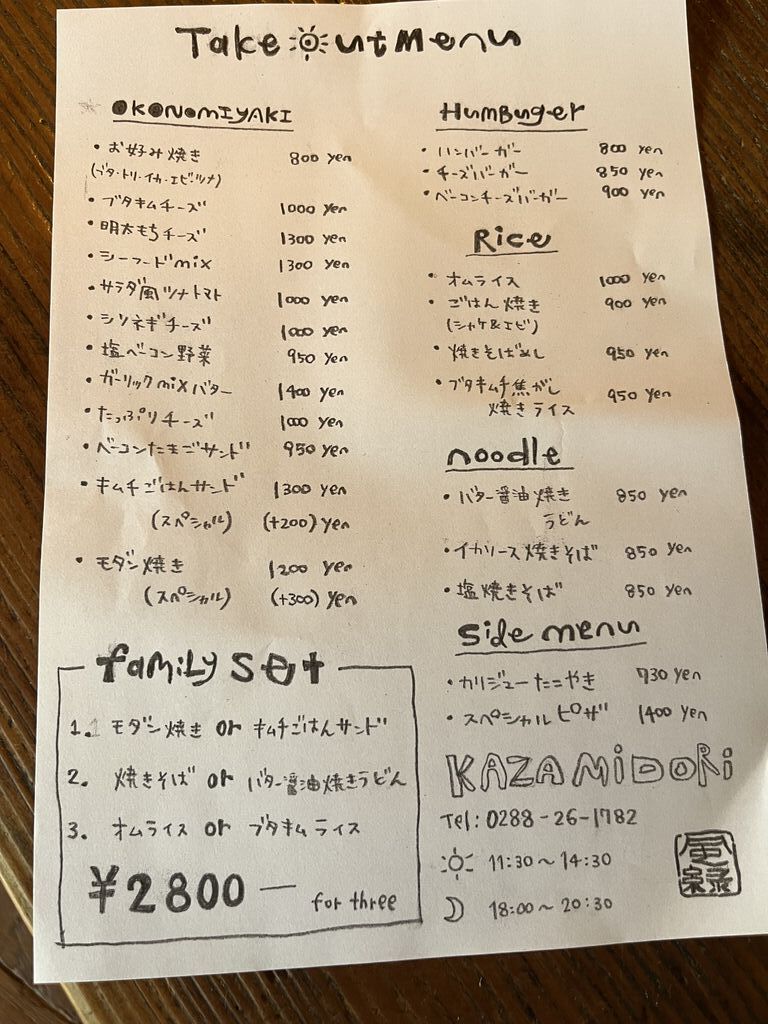 Take Out Menu
OKONOMIYAKI
・お好み焼き 800 yen
(ブタ・トリ・イカ・エビ・ツナ)
・ブタキムチーズ 1000 yen
・明太もちチーズ 1300 yen
・シーフードmix 1300 yen
・サラダ風ツナトマト 1000 yen
・シソネギチーズ 1000 yen
・塩ベーコン野菜 950 yen
・ガーリックmixバター 1400 yen
・たっぷりチーズ 1000 yen
・ベーコンたまごサンド 950 yen
・キムチごはんサンド 1300 yen
(スペシャル) (+200) yen
・モダン焼き 1200 yen
(スペシャル) (+300) yen
family set
1. モダン焼き or キムチごはんサンド
2. 焼きそば or バター醤油焼きうどん
3. オムライス or ブタキムライス
¥2800 — for three
Humbuger
・ハンバーガー 800 yen
・チーズバーガー 850 yen
・ベーコンチーズバーガー 900 yen
Rice
・オムライス 1000 yen
・ごはん焼き 900 yen
(シャケ&エビ)
・焼きそばめし 950 yen
・ブタキムチ焦がし 950 yen
焼きライス
noodle
・バター醤油焼き 850 yen
うどん
・イカリース焼きそば 850 yen
・塩焼きそば 850 yen
side menu
・カリジューたこやき 730 yen
・スペシャルピザ 1400 yen
KAZAMIDORi
Tel: 0288-26-1782
11:30〜14:30
18:00〜20:30
風
緑